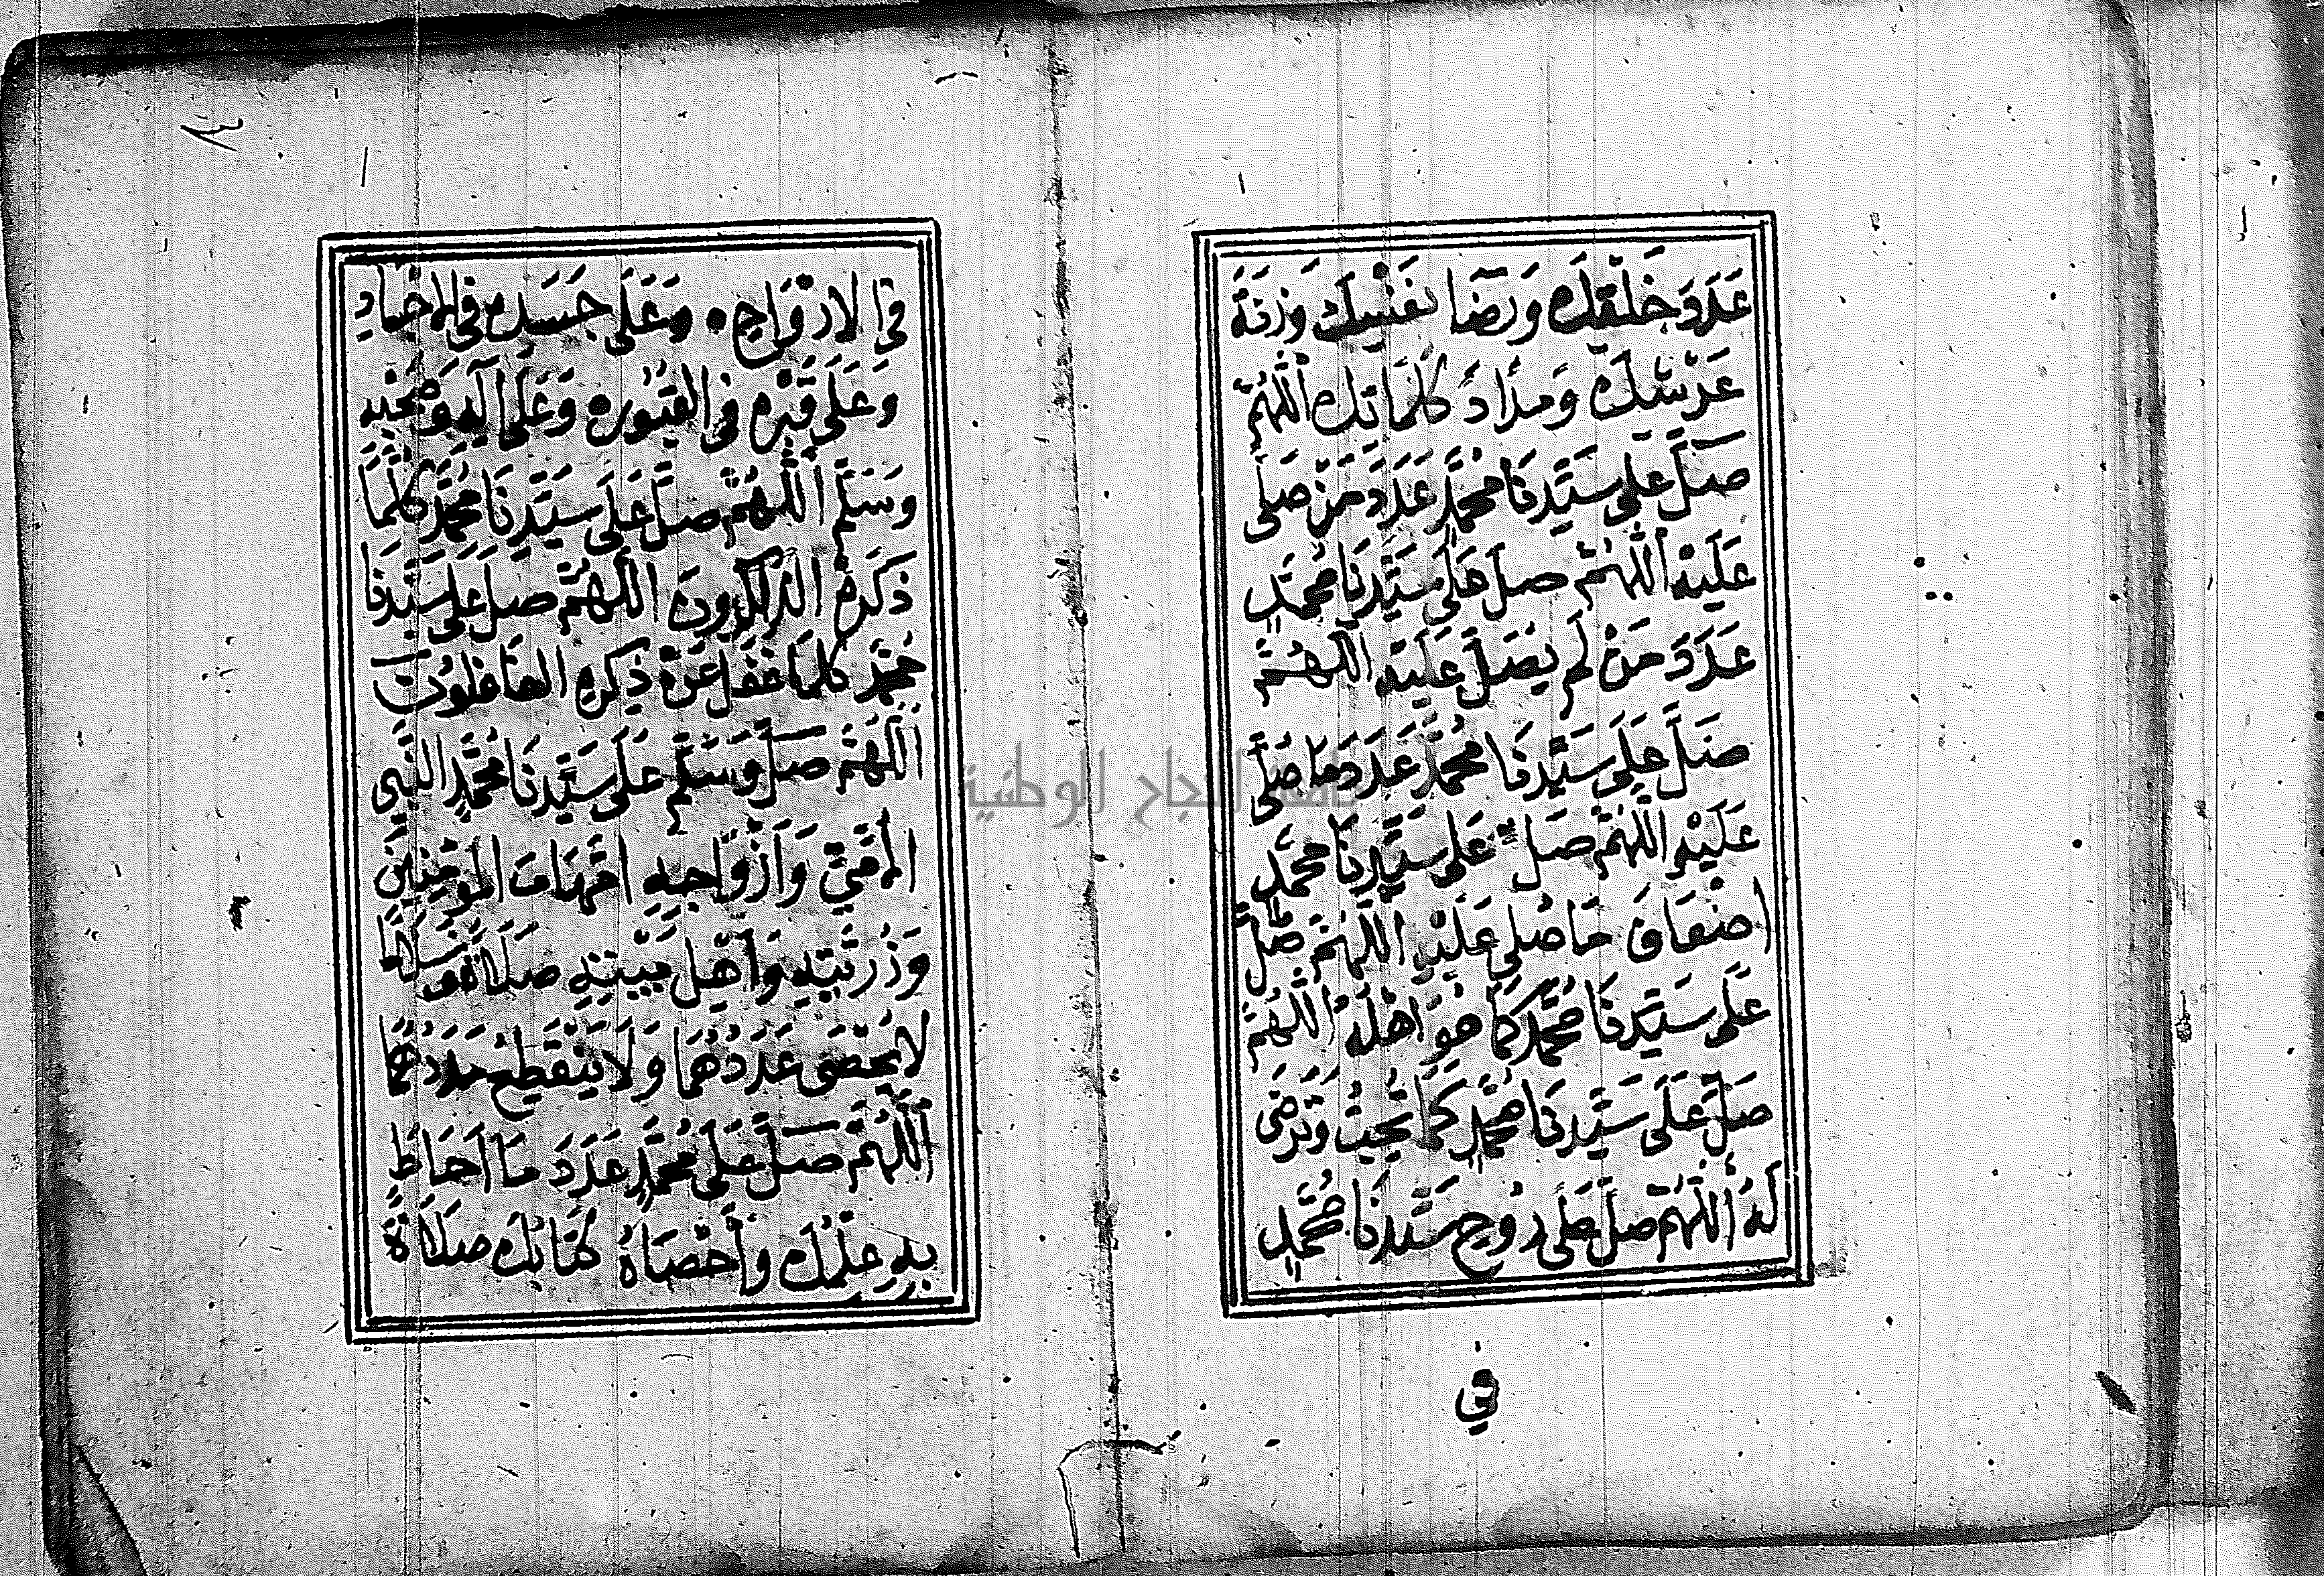 عَدَدَ خَلْقِكَ وَرِضَا نَفْسِكَ وَزِنَةَ
عَرْشِكَ وَمِدَادَ كَلِمَاتِكَ اَللّٰهُمَّ
صَلِّ عَلَى سَيِّدِنَا مُحَمَّدٍ عَدَدَ مَنْ صَلَّى
عَلَيْهِ اَللّٰهُمَّ صَلِّ عَلَى سَيِّدِنَا مُحَمَّدٍ
عَدَدَ مَنْ لَمْ يُصَلِّ عَلَيْهِ اَللّٰهُمَّ
صَلِّ عَلَى سَيِّدِنَا مُحَمَّدٍ عَدَدَ مَا صُلِّيَ
عَلَيْهِ اَللّٰهُمَّ صَلِّ عَلَى سَيِّدِنَا مُحَمَّدٍ
اضْعَافَ مَا صُلِّيَ عَلَيْهِ اَللّٰهُمَّ صَلِّ
عَلَى سَيِّدِنَا مُحَمَّدٍ كَمَا هُوَ اهْلُهُ اَللّٰهُمَّ
صَلِّ عَلَى سَيِّدِنَا مُحَمَّدٍ كَمَا تُحِبُّ وَتَرْضَى
لَهُ اَللّٰهُمَّ صَلِّ عَلَى رُوحِ سَيِّدِنَا مُحَمَّدٍ
في
فِي الارْوَاحِ وَعَلَى جَسَدِهِ فِي الاجْسَادِ
وَعَلَى قَبْرِهِ فِي الْقُبُورِ وَعَلَى آلِهِ وَصَحْبِهِ
وَسَلِّمْ اَللّٰهُمَّ صَلِّ عَلَى سَيِّدِنَا مُحَمَّدٍ كُلَّمَا
ذَكَرَهُ الذَّاكِرُونَ اَللّٰهُمَّ صَلِّ عَلَى سَيِّدِنَا
مُحَمَّدٍ كُلَّمَا غَفَلَ عَنْ ذِكْرِهِ الْغَافِلُونَ
اَللّٰهُمَّ صَلِّ وَسَلِّمْ عَلَى سَيِّدِنَا مُحَمَّدٍ النَّبِيِّ
الْأُمِّيِّ وَأَزْوَاجِهِ امَّهَاتِ الْمُؤْمِنِينَ
وَذُرِّيَّتِهِ وَأَهْلِ بَيْتِهِ صَلَاةً وَسَلَامًا
لَا يُحْصَى عَدَدُهُمَا وَلَا يَنْقَطِعُ مَدَدُهُمَا
اَللّٰهُمَّ صَلِّ عَلَى مُحَمَّدٍ عَدَدَ مَا أَحَاطَ
بِهِ عِلْمُكَ وَأَحْصَاهُ كِتَابُكَ صَلَاةً
جامعة النجاح الوطنية